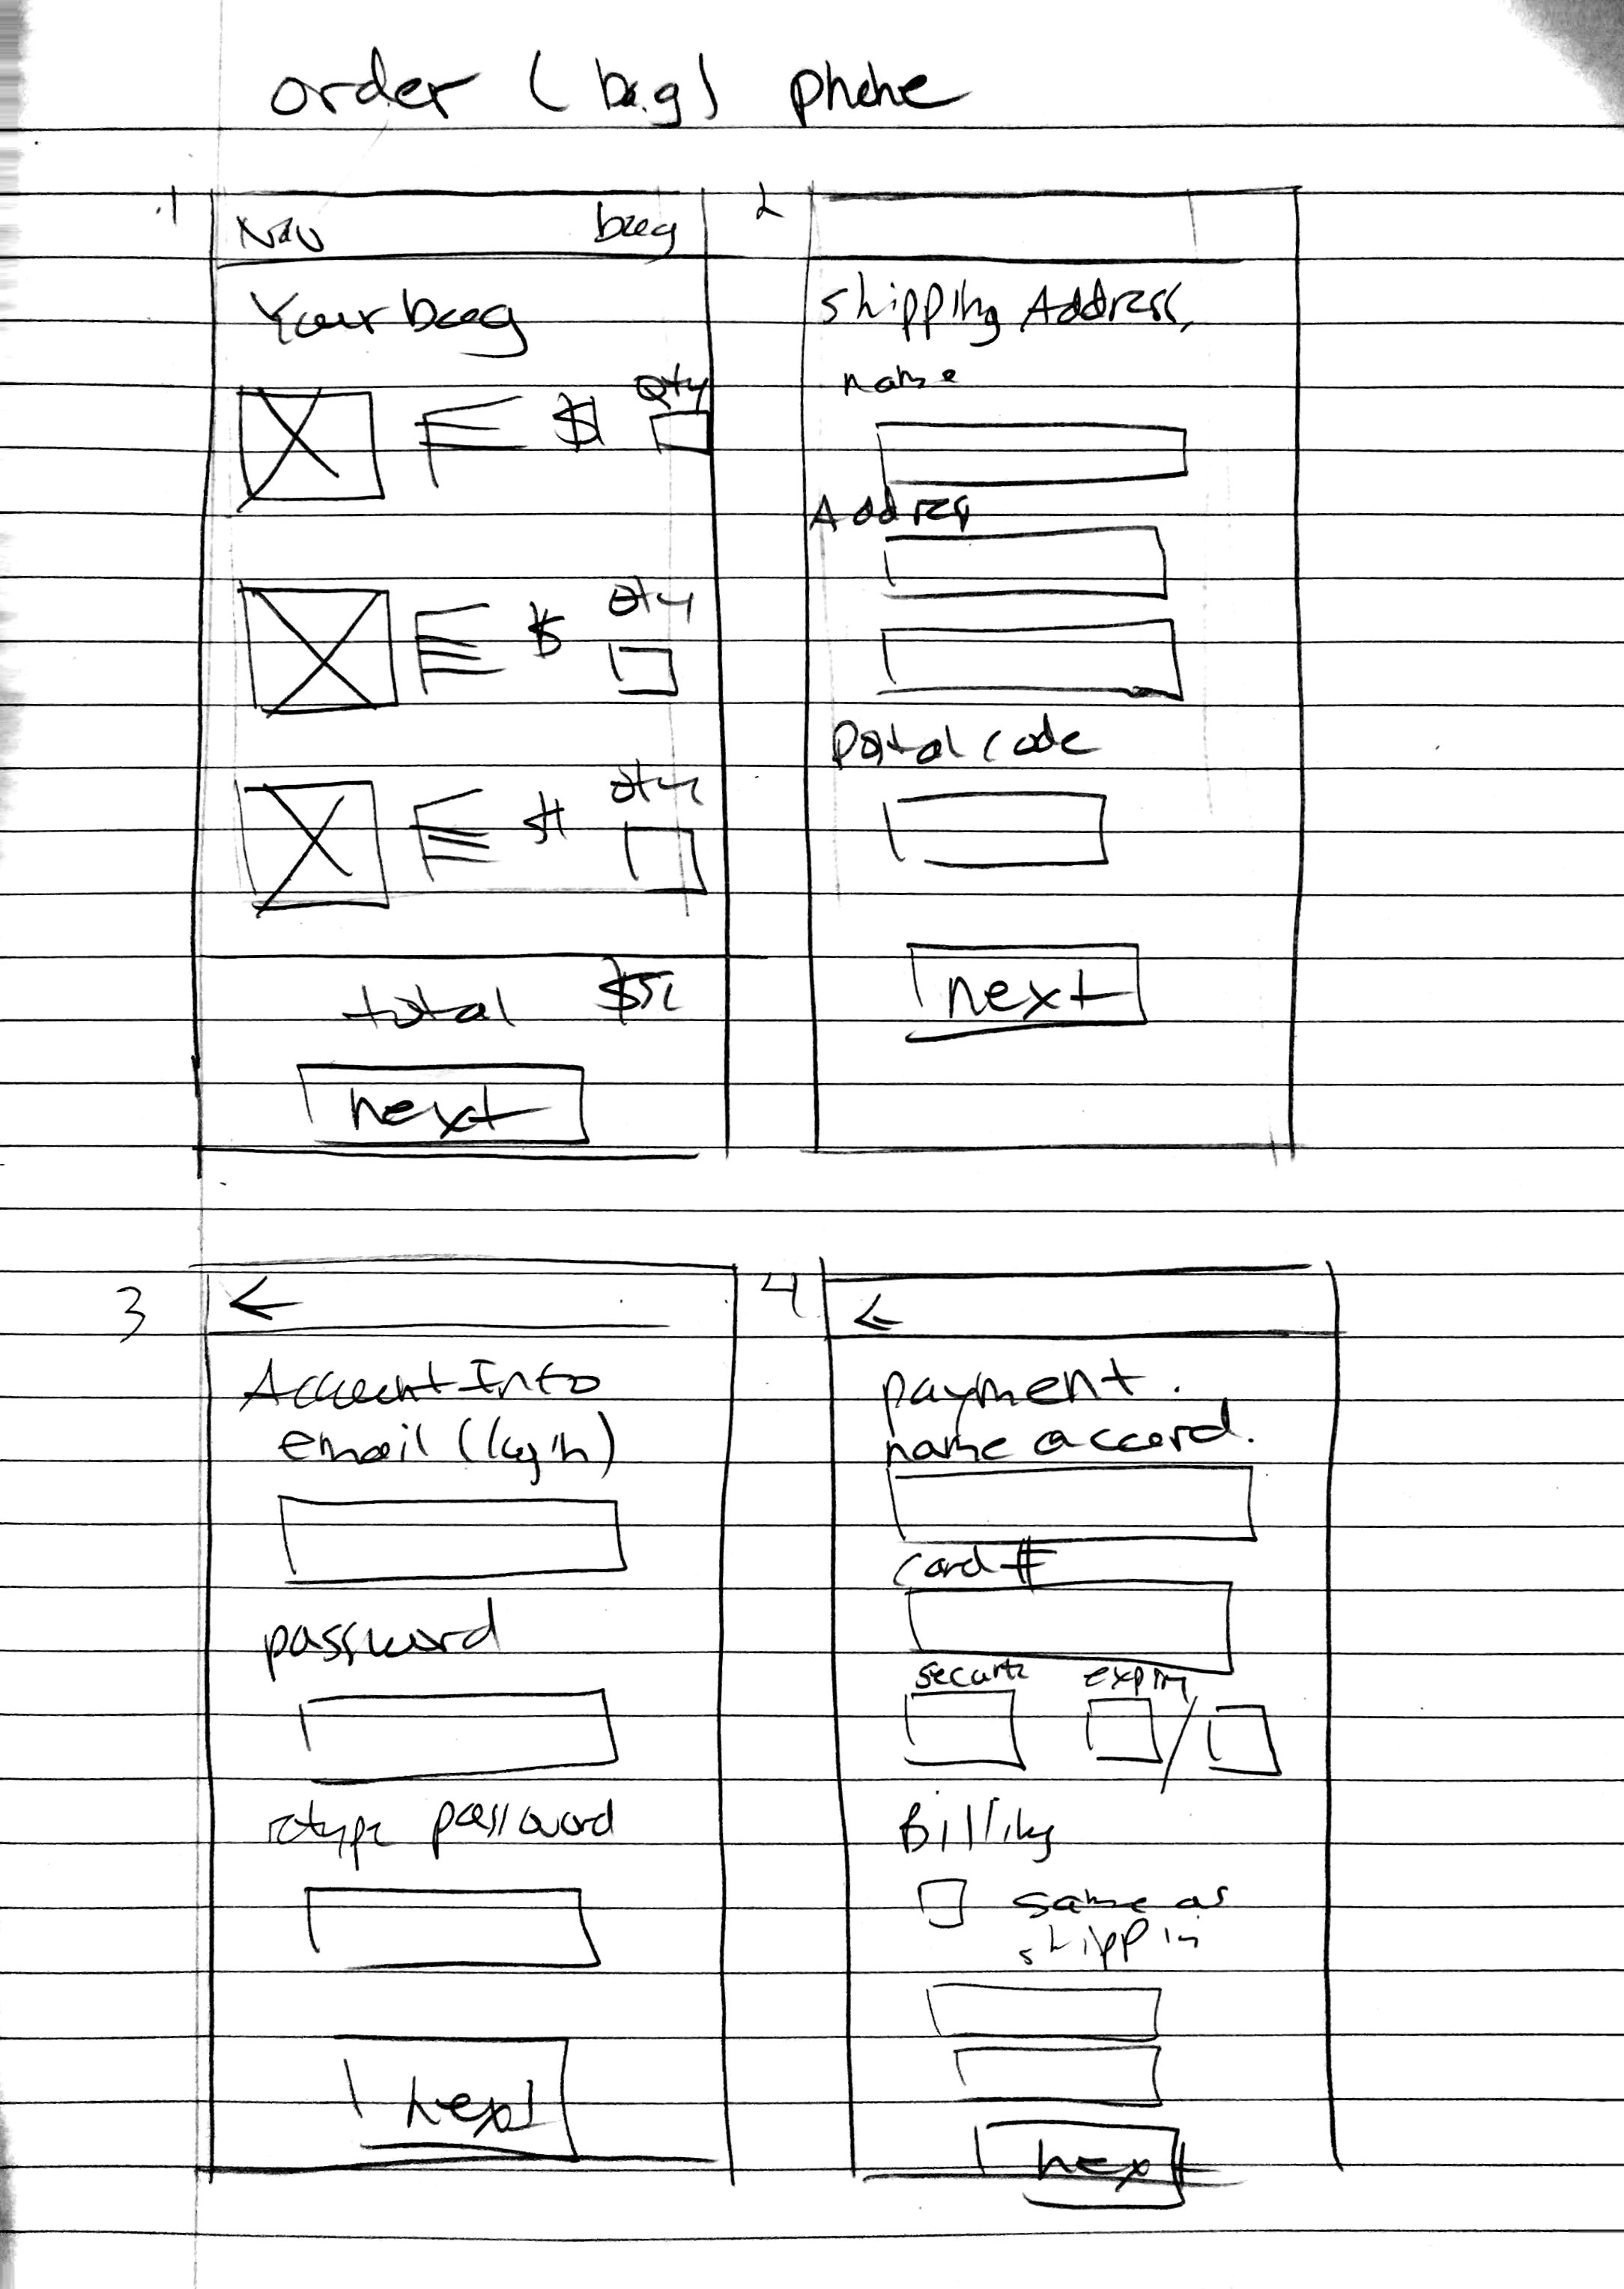 order (bag) phone
1
Nav bag
Your bag
$ Qty
$ Qty
$ Qty
total
next
2
Shipping Address
name
Address
Postal code
next
3
←
Account Info
email (login)
password
retype password
next
4
←
payment
name
card #
expiry
/
Billing
same as
shippin
next